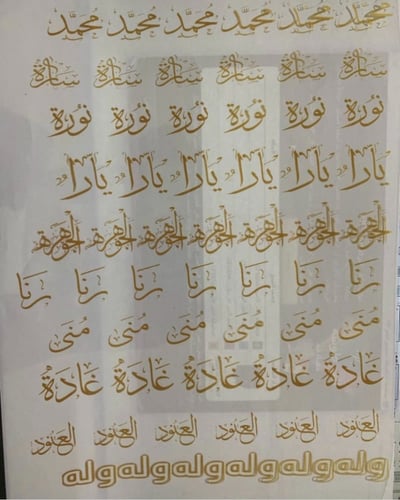 محمّد محمّد محمّد محمّد محمّد محمّد
سارة سارة سارة سارة سارة سارة
نُورة نُورة نُورة نُورة نُورة نُورة
يارا يارا يارا يارا يارا يارا
الجوهرة الجوهرة الجوهرة الجوهرة الجوهرة الجوهرة الجوهرة
رنا رنا رنا رنا رنا رنا رنا
مُنى مُنى مُنى مُنى مُنى مُنى
غادة غادة غادة غادة غادة
العنود العنود العنود العنود العنود العنود
وله وله وله وله وله وله